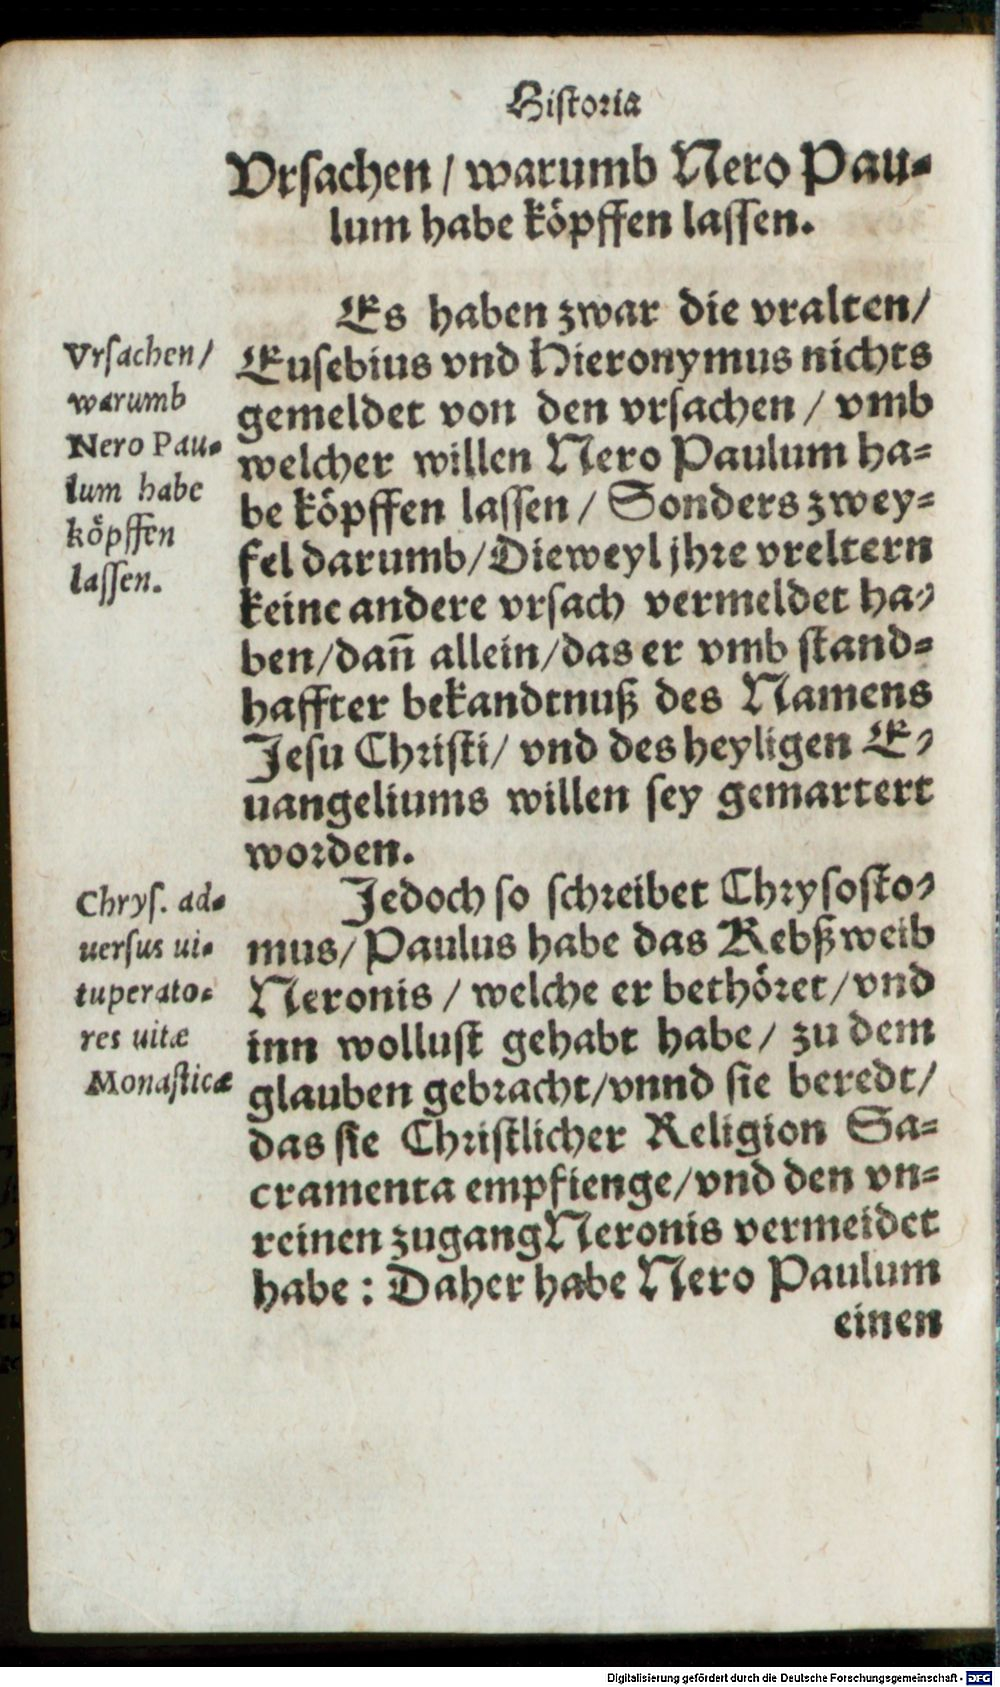 Historia
Vrsachen / warumb Nero Pau-
lum habe köpffen lassen.
Es haben zwar die vralten /
Eusebius vnd Hieronymus nichts
gemeldet von den vrsachen / vmb
welcher willen Nero Paulum ha-
be köpffen lassen / Sonders zwey-
fel darumb / Dieweyl jhre vreltern
keine andere vrsach vermeldet ha-
ben / dañ allein / das er vmb stand-
haffter bekandtnuß des Namens
Jesu Christi / vnd des heyligen E-
uangeliums willen sey gemartert
worden.
Vrsachen /
warumb
Nero Pau-
lum habe
köpffen
lassen.
Jedoch so schreibet Chrysosto-
mus / Paulus habe das Rebßweib
Neronis / welche er bethöret / vnd
inn wollust gehabt habe / zu dem
glauben gebracht / vnnd sie beredt /
das sie Christlicher Religion Sa-
cramenta empfienge / vnd den vn-
reinen zugang Neronis vermeidet
habe : Daher habe Nero Paulum
einen
Chrys. ad-
uersus ui-
tuperato-
res uitæ
Monasticæ
Digitalisierung gefördert durch die Deutsche Forschungsgemeinschaft - DFG